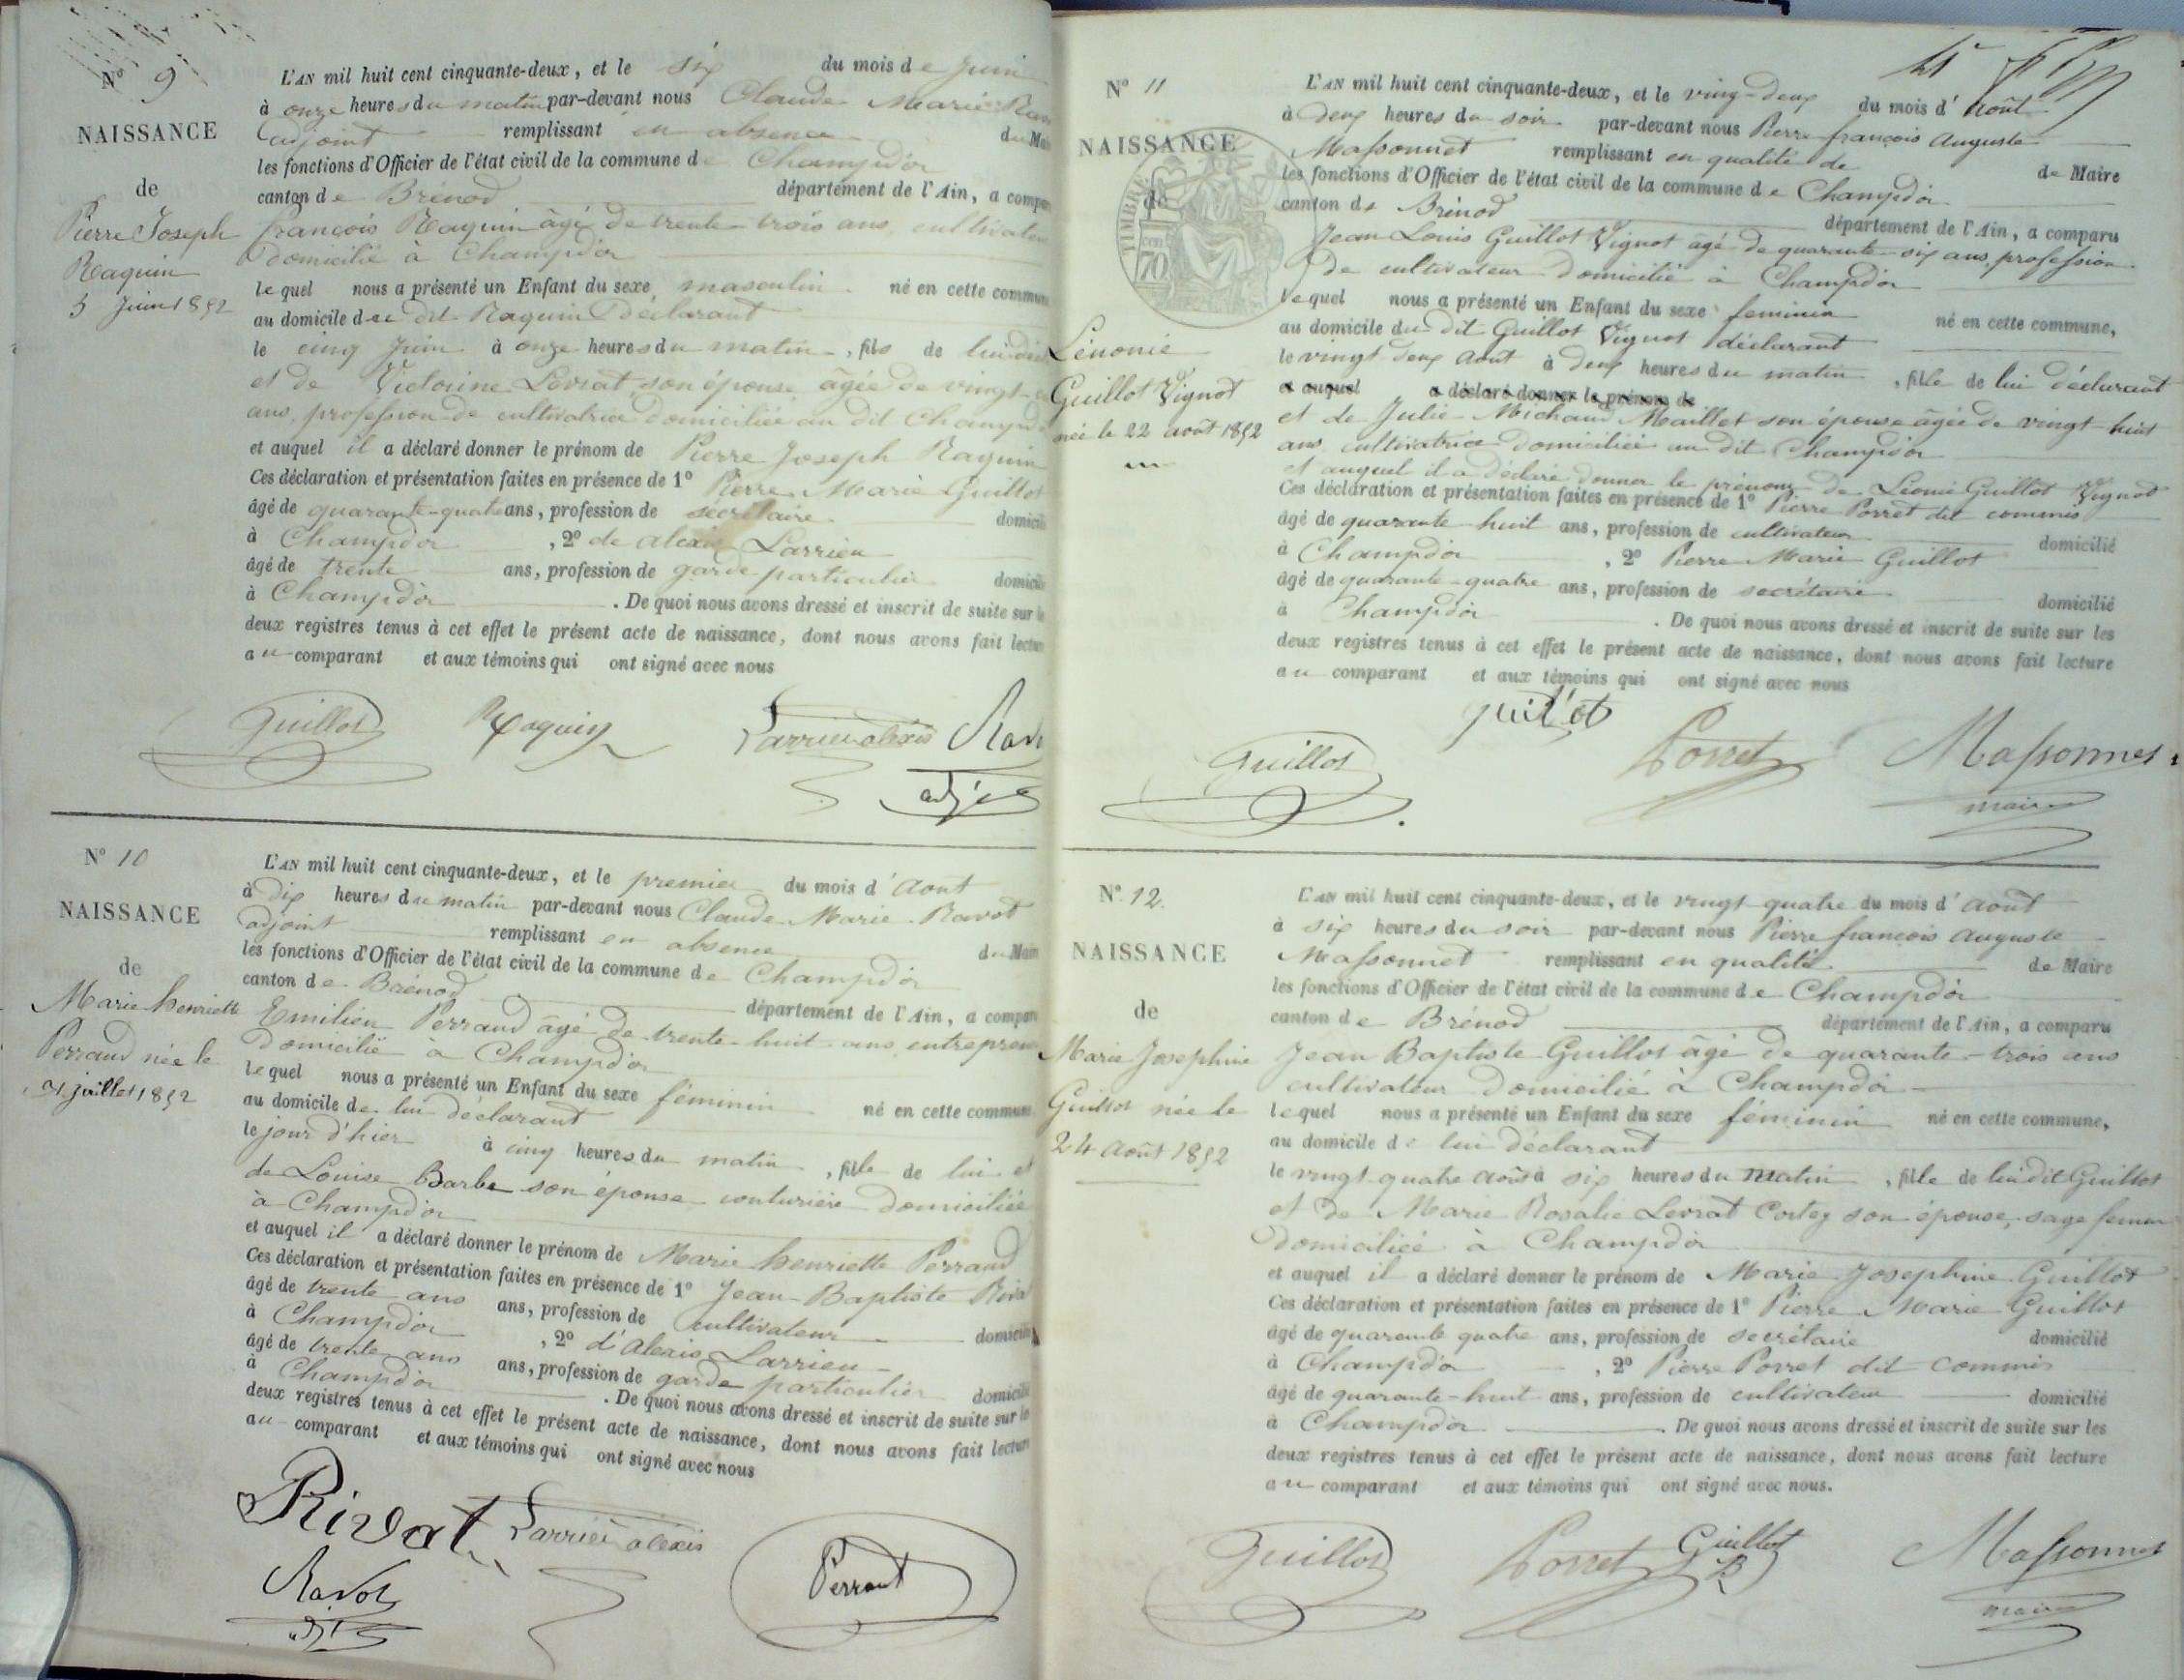 Nº 9
NAISSANCE
de
Pierre Joseph
Raquin
5 Juin 1852
L'AN mil huit cent cinquante-deux, et le six du mois de Juin
à onze heures du matin par-devant nous Claude Marie
adjoint remplissant en absence du
les fonctions d'Officier de l'état civil de la commune de Champdor
canton de Brénod département de l'Ain, a
françois Raquin âgé de trente trois ans, cultivateur
domicilié à Champdor
lequel nous a présenté un Enfant du sexe masculin né en cette
au domicile du dit Raquin déclarant
le cinq Juin à onze heures du matin, fils de lui
et de Victorine Levrat, son épouse, âgée de vingt
ans, profession de cultivatrice domiciliée au dit
et auquel il a déclaré donner le prénom de Pierre Joseph Raquin
Ces déclaration et présentation faites en présence de 1º Pierre Marie Guillot
âgé de quarante-quatre ans, profession de secrétaire
à Champdor, 2º de alexis Larrieu
âgé de trente ans, profession de garde particulier
à Champdor. De quoi nous avons dressé et inscrit de suite sur
deux registres tenus à cet effet le présent acte de naissance, dont nous avons fait
au comparant et aux témoins qui ont signé avec nous
Guillot Raquin Larrieu alexis
Nº 10
NAISSANCE
de
Marie henriette
Perraud née le
31 juillet 1852
L'AN mil huit cent cinquante-deux, et le premier du mois d'Aout
à dix heures du matin par-devant nous Claude Marie Ravot
adjoint remplissant en absence du
les fonctions d'Officier de l'état civil de la commune de Champdor
canton de Brénod département de l'Ain, a
Emilien Perraud âgé de trente-huit ans,
domicilié à Champdor
lequel nous a présenté un Enfant du sexe féminin né en cette
au domicile de lui déclarant
le jour d'hier à cinq heures du matin, fille de lui et
de Louise Barbe son épouse couturière domiciliée
à Champdor
et auquel il a déclaré donner le prénom de Marie henriette Perraud
Ces déclaration et présentation faites en présence de 1º Jean-Baptiste
âgé de trente ans ans, profession de cultivateur
à Champdor, 2º d'Alexis Larrieu
âgé de trente ans ans, profession de garde particulier
à Champdor. De quoi nous avons dressé et inscrit de suite sur
deux registres tenus à cet effet le présent acte de naissance, dont nous avons fait
au comparant et aux témoins qui ont signé avec nous
Rivat Larrieu alexis
Ravot Perraud
Nº 11
NAISSANCE
de
TIMBRE
70
Lénonie
Guillot Vignot
née le 22 août 1852
L'AN mil huit cent cinquante-deux, et le ving-deux du mois d'août
à deux heures du soir par-devant nous Pierre françois Auguste
Massonnet remplissant en qualité de de Maire
les fonctions d'Officier de l'état civil de la commune de Champdor
canton de Brénod département de l'Ain, a comparu
Jean Louis Guillot Vignot âgé de quarante-six ans, profession
de cultivateur domicilié à Champdor
lequel nous a présenté un Enfant du sexe feminin né en cette commune,
au domicile du dit Guillot Vignot déclarant
le vingt deux Aout à deux heures du matin, fille de lui déclarant
et auquel a déclaré donner le prénom de
et de Julie Michaud Maillet son épouse âgée de vingt huit
ans cultivatrice domiciliée au dit Champdor
et auquel il a déclaré donner le prénom de Léonie Guillot Vignot
Ces déclaration et présentation faites en présence de 1º Pierre Porret dit commis
âgé de quarante huit ans, profession de cultivateur domicilié
à Champdor, 2º Pierre Marie Guillot
âgé de quarante-quatre ans, profession de secrétaire domicilié
à Champdor. De quoi nous avons dressé et inscrit de suite sur les
deux registres tenus à cet effet le présent acte de naissance, dont nous avons fait lecture
au comparant et aux témoins qui ont signé avec nous
guillot
Guillot Porret Massonnet
maire
Nº 12
NAISSANCE
de
Marie Josephine
Guillot née le
24 Août 1852
L'AN mil huit cent cinquante-deux, et le vingt-quatre du mois d'août
à six heures du soir par-devant nous Pierre françois Auguste
Massonnet remplissant en qualité de Maire
les fonctions d'Officier de l'état civil de la commune de Champdor
canton de Brénod département de l'Ain, a comparu
Jean Baptiste Guillot âgé de quarante-trois ans
cultivateur domicilié à Champdor
lequel nous a présenté un Enfant du sexe féminin né en cette commune,
au domicile de lui déclarant
le vingt quatre août à six heures du matin, fille de lui dit Guillot
et de Marie Rosalie Levrat Cortey son épouse, sage femme
domiciliée à Champdor
et auquel il a déclaré donner le prénom de Marie Josephine Guillot
Ces déclaration et présentation faites en présence de 1º Pierre Marie Guillot
âgé de quarante quatre ans, profession de secrétaire domicilié
à Champdor, 2º Pierre Porret dit Commis
âgé de quarante-huit ans, profession de cultivateur domicilié
à Champdor. De quoi nous avons dressé et inscrit de suite sur les
deux registres tenus à cet effet le présent acte de naissance, dont nous avons fait lecture
au comparant et aux témoins qui ont signé avec nous.
Guillot Porret Guillot JB Massonnet
maire